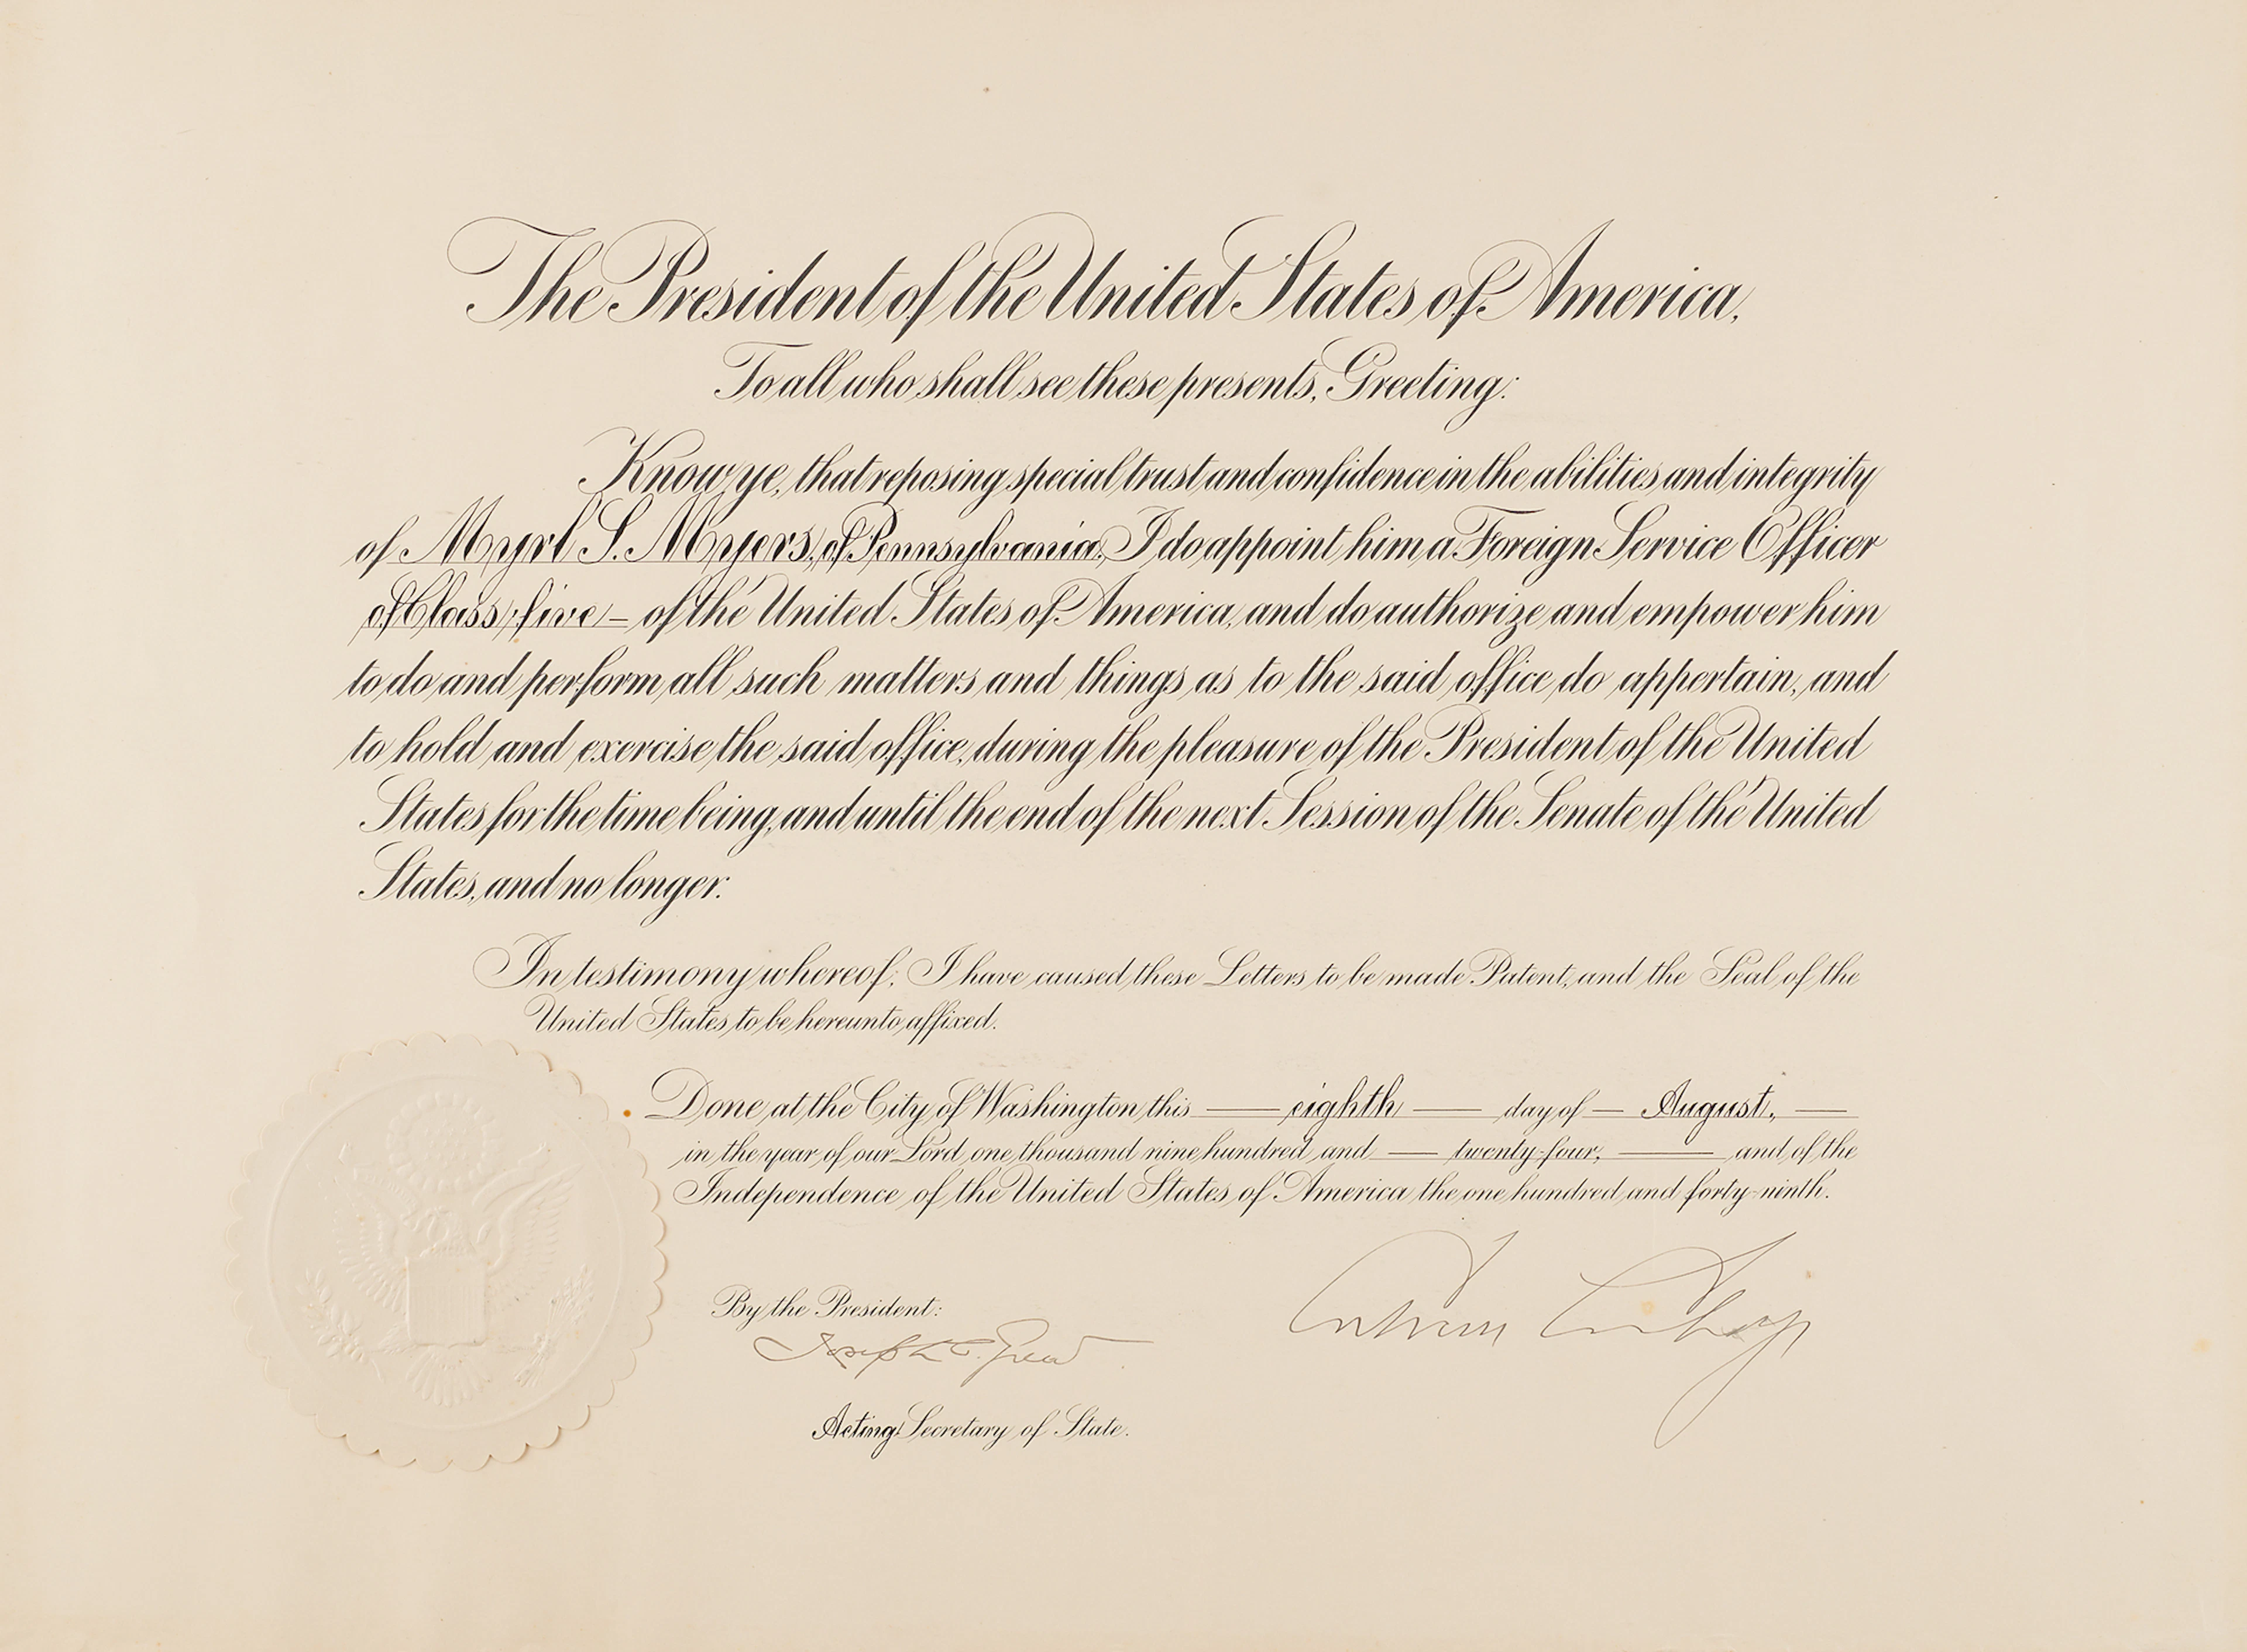 The President of the United States of America,
To all who shall see these presents, Greeting:
Know ye, that reposing special trust and confidence in the abilities and integrity
of Myrl S. Myers, of Pennsylvania, I do appoint him a Foreign Service Officer
of Class five – of the United States of America, and do authorize and empower him
to do and perform all such matters and things as to the said office do appertain, and
to hold and exercise the said office, during the pleasure of the President of the United
States for the time being, and until the end of the next Session of the Senate of the United
States, and no longer.
In testimony whereof, I have caused these Letters to be made Patent, and the Seal of the
United States to be hereunto affixed.
Done at the City of Washington this — eighth — day of — August, —
in the year of our Lord one thousand nine hundred and — twenty-four, — and of the
Independence of the United States of America the one hundred and forty-ninth.
Calvin Coolidge
By the President:
Joseph C. Grew
Acting Secretary of State.